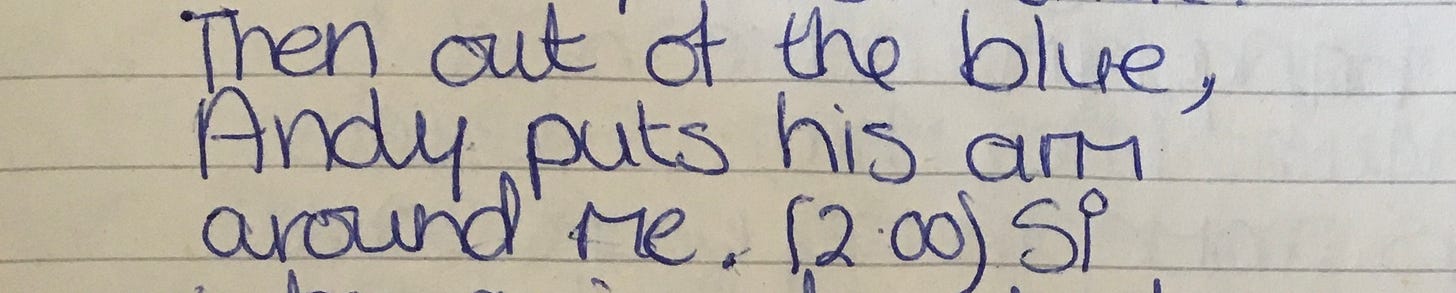 Then out of the blue,
Andy puts his arm
around me. (2.00) SP